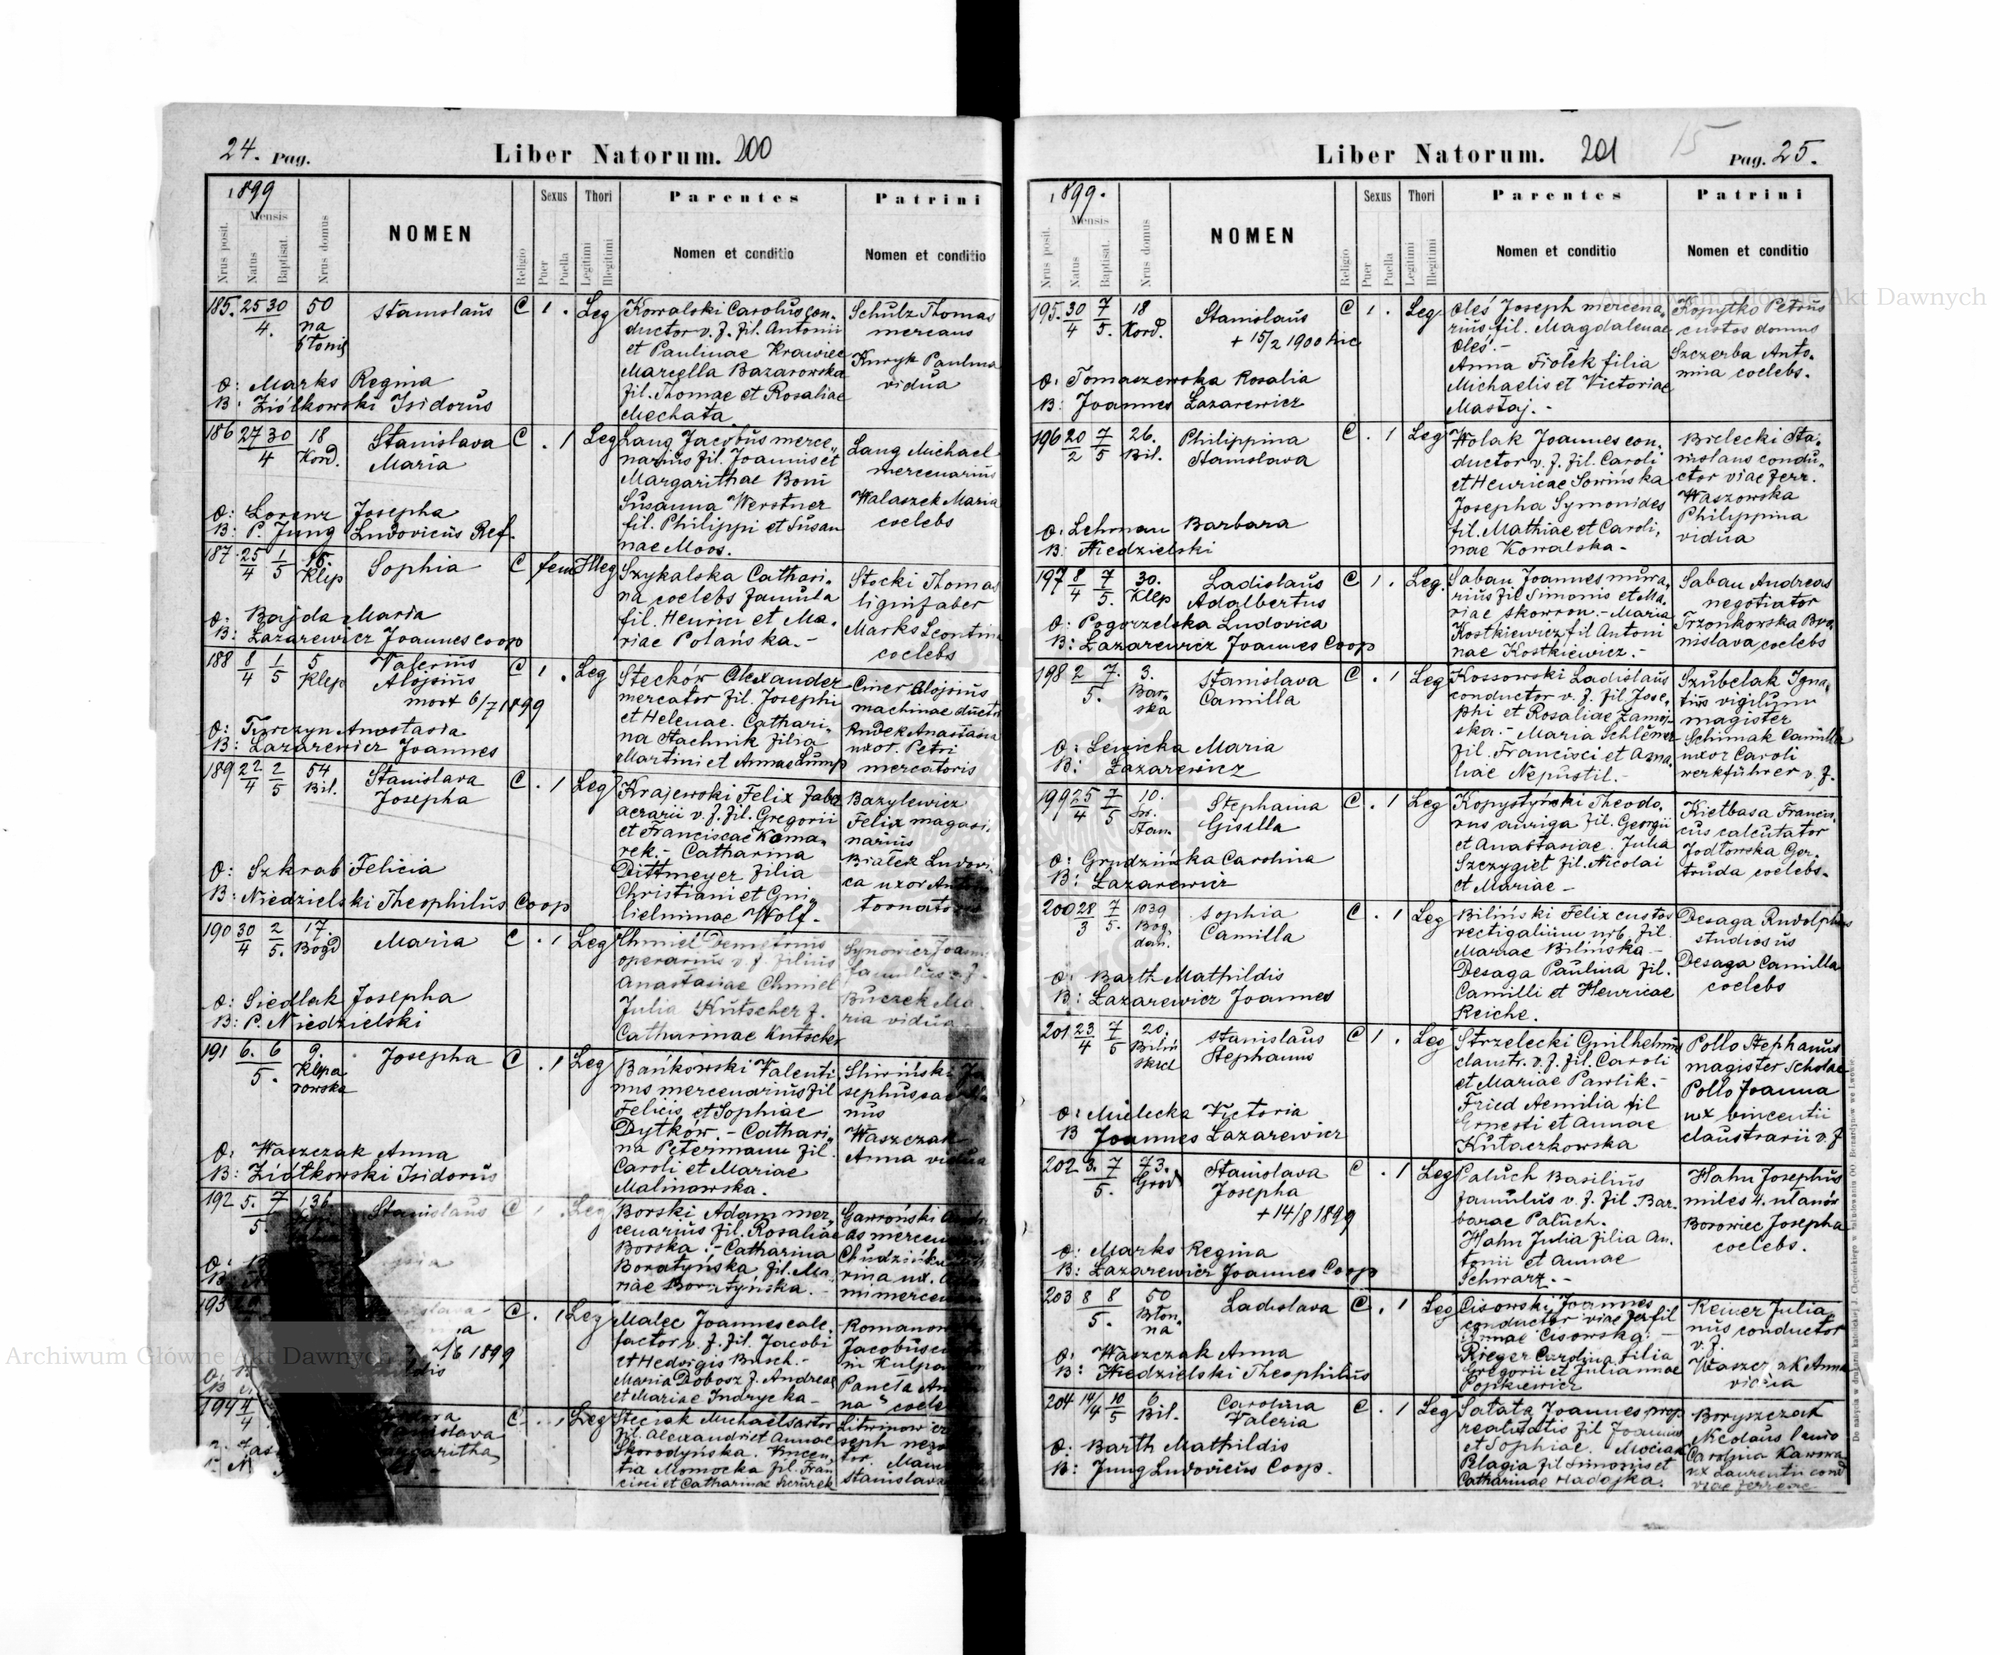 24. Pag.
Liber Natorum. 200
1899
Mensis
Nrus posit.
Natus
Baptisat.
Nrus domus
NOMEN
Religio
Sexus
Puer
Puella
Thori
Legitimi
Illegitimi
Parentes
Nomen et conditio
Patrini
Nomen et conditio
185. 25/4. 30 50 na Błonie Stanislaus C 1 . Leg
Kowalski Carolus con-
ductor v. f. fil. Antonii
et Paulinae Krawiec
Marcella Bazarowska
fil. Thomae et Rosaliae
Mechata
Schulz Thomas
mercans
Kuryk Paulina
vidua
O: Marks Regina
B: Ziółkowski Isidorus
186 27 30/4 18 Kord. Stanislava Maria C . 1 Leg
Lang Jacobus merce-
narius fil. Joannis et
Margarithae Boni
Susanna Werstner
fil. Philippi et Susan
nae Moos.
Lang Michael
mercenarius
Walaszek Maria
coelebs
O: Lorenz Josepha
B: P. Jung Ludovicus Ref.
187 25/4 1/5 Klep Sophia C fem Illeg
Szykalska Cathari-
na coelebs famula
fil. Henrici et Ma-
riae Polańska.-
Stocki Thomas
lignifaber
Marks Leontina
coelebs
O: Bajda Maria
B: Lazarewicz Joannes coop
188 8/4 1/5 5 Klep Valerius Aloysius C 1 . Leg
mort 6/7 1899
Stecków Alexander
mercator fil. Josephi
et Helenae. Cathari-
na Stachnik filia
Martini et Annae Lump
Ciner Alojsius
machinae ductor
Rudek Anastasia
uxor Petri
mercatoris
O: Turczyn Anastasia
B: Lazarewicz Joannes
189 22/4 2/5 54 Bil. Stanislava Josepha C . 1 Leg
Krajewski Felix fabr
aerarii v. f. fil. Gregorii
et Franciscae Koma-
rek.- Catharina
Dittmeyer filia
Christiani et Gui-
lielminae Wolf.-
Bazylewicz
Felix magasi-
narius
Ludovi-
ca uxor
O: Szkrab Felicia
B: Niedzielski Theophilus Coop
190 30/4 2/5. 17. Bogd Maria C . 1 Leg
Chmiel Demetrius
operarius v. f. filius
Anastasiae Chmiel
Julia Kutscher f.
Catharinae Kutscher
Synowiec
famulus v. f.
Buczek Ma-
ria vidua
O: Siedlak Josepha
B: P. Niedzielski
191 6. 6/5. 9. Klepa rowska Josepha C . 1 Leg
Bańkowski Valenti
nus mercenarius fil
Felicis et Sophiae
Dytków.- Cathari-
na Petermann fil.
Caroli et Mariae
Malinowska.
Sliwiński
sephus
nus
Waszczak
Anna vidua
O: Waszczak Anna
B: Ziółkowski Isidorus
192 5. 7/5 136 Stanislaus C 1 . Leg
Borski Adam mer-
cenarius fil. Rosaliae
Borska.- Catharina
Boratyńska fil. Ma-
riae Boratyńska.-
Gawroński
as
rina ux.
193 C . 1 Leg
2/6 1899
Malec Joannes cale-
factor v. f. fil. Jacobi
et Hedvigis Busch.-
Maria Dobosz f. Andreae
et Mariae Indrycka-
Jacobus
194 4/4 C . 1 Leg
Steciak Michael sartor
fil. Alexandri et Annae
Skorodyńska. Vincen-
tia Momocka fil. Fran
cisci et Catharinae
Stanislava
Liber Natorum. 201
15
Pag. 25.
1899.
Mensis
Nrus posit.
Natus
Baptisat.
Nrus domus
NOMEN
Religio
Sexus
Puer
Puella
Thori
Legitimi
Illegitimi
Parentes
Nomen et conditio
Patrini
Nomen et conditio
195. 30/4 7/5. 18 Kord. Stanislaus C 1 . Leg
+ 15/2 1900 hic
Oleś Joseph mercena-
rius fil. Magdalenae
Oleś.-
Anna Fiołek filia
Michaelis et Victoriae
Mastaj.-
Kopytko Petrus
custos domus
Szczerba Anto-
nina coelebs.
O: Tomaszewska Rosalia
B: Joannes Lazarewicz
196 20/2 7/5 26. Bil. Philippina Stanislava C . 1 Leg
Wolak Joannes con-
ductor v. f. fil. Caroli
et Henricae Sowińska
Josepha Symonides
fil. Mathiae et Caroli-
nae Kowalska-
Bielecki Sta-
nislaus condu-
ctor viae ferr.
Waszowska
Philippina
vidua
O: Lehman Barbara
B: Niedzielski
197 8/4 7/5. 30. Klep Ladislaus Adalbertus C 1 . Leg.
Saban Joannes mura-
rius fil Simonis et Ma-
riae Skowron.- Maria
Kostkiewicz fil Antoni
nae Kostkiewicz.-
Saban Andreas
negotiator
Trzonkowska Bro-
nislava coelebs
O: Pogorzelska Ludovica
B: Lazarewicz Joannes Coop
198 2 7./5. 3. Bar- ska Stanislava Camilla C . 1 Leg
Kossowski Ladislaus
conductor v. f. fil Jose-
phi et Rosaliae Zamoj-
ska.- Maria Schlener
fil. Francisci et Ama-
liae Nepustil.-
Szubelak Igna-
tius vigilum
magister
Schimak Camilla
uxor Caroli
werkführer v. f.
O: Lewicka Maria
B: Lazarewicz
199 25/4 7/5 10. Stephania Gisella C . 1 Leg
Kopystyński Theodo-
rus auriga fil. Georgii
et Anastasiae. Julia
Szczygieł fil. Nicolai
et Mariae-
Kiełbasa Francis-
cus calculator
Jodłowska Ger-
truda coelebs.
O: Grudzińska Carolina
B: Lazarewicz
200 28/3 7/5. 1039 Bog dan. Sophia Camilla C . 1 Leg
Biliński Felix custos
vectigalium urb. fil.
Mariae Bilińska-
Desaga Paulina fil.
Camilli et Henricae
Reiche.
Desaga Rudolphus
studiosus
Desaga Camilla
coelebs
O: Barth Mathildis
B: Lazarewicz Joannes
201 23/4 7/5 20. Biliń skich Stanislaus Stephanus C 1 . Leg
Strzelecki Guilhelmus
claustr. v. f. fil. Caroli
et Mariae Pawlik.-
Fried Aemilia fil
Ernesti et Annae
Kutaczkowska
Pollo Stephanus
magister Scholae
Pollo Joanna
ux Vincentii
claustrarii v. f
O: Mielecka Victoria
B Joannes Lazarewicz
202 3. 7/5. 73. Grod Stanislava Josepha C . 1 Leg
+ 14/8 1899
Paluch Basilius
famulus v. f. fil Bar-
barae Paluch.
Hahn Julia filia An-
tonii et Annae
Schwarz.-
Hahn Josephus
miles 4. ulanów
Borowiec Josepha
coelebs.
O: Marks Regina
B: Lazarewicz Joannes Coop
203 8 8/5. 50 Błon- na Ladislava C . 1 Leg
Cisowski Joannes
conductor viae fer fil
Annae Cisowska.-
Rieger Carolina filia
Gregorii et Juliannae
Popkiewicz
Reiner Julia-
nus conductor
v. f.
Waszczak Anna
vidua
O: Waszczak Anna
B: Niedzielski Theophilus
204 14/4 10/5 6. Bil. Carolina Valeria C . 1 Leg
Satata Joannes prop
realitatis fil Joannis
et Sophiae. Mociak
Pelagia fil Simonis et
Catharinae Hadojka.
Boryszczak
Nicolaus
Carolina
ux Laurentii cond
viae ferreae
O: Barth Mathildis
B: Jung Ludovicus Coop.
Archiwum Główne Akt Dawnych
Archiwum Główne Akt Dawnych